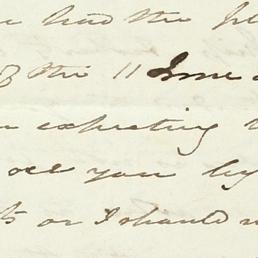 had the
the 11 June
expecting
see you by
or I should